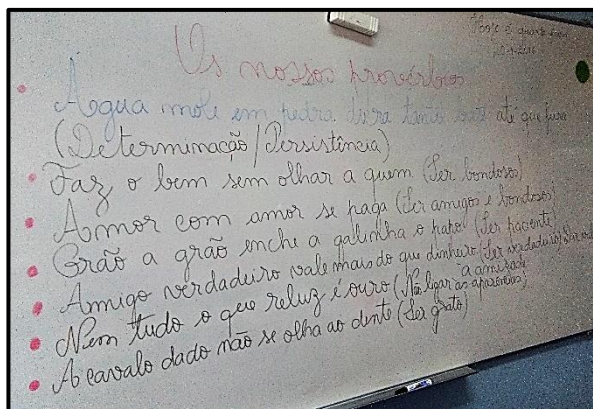 Hoje é quarta-feira
Os nossos provérbios
• Água mole em pedra dura tanto bate até que fura
(Determinação/Persistência)
• Faz o bem sem olhar a quem (Ser bondoso)
• Amor com amor se paga (Ser amigos e bondosos)
• Grão a grão enche a galinha o papo (Ser paciente)
• Amigo verdadeiro vale mais do que dinheiro (Ser verdadeiro/
a amizade
• Nem tudo o que reluz é ouro (Não ligar às aparências)
• A cavalo dado não se olha ao dente (Ser grato)